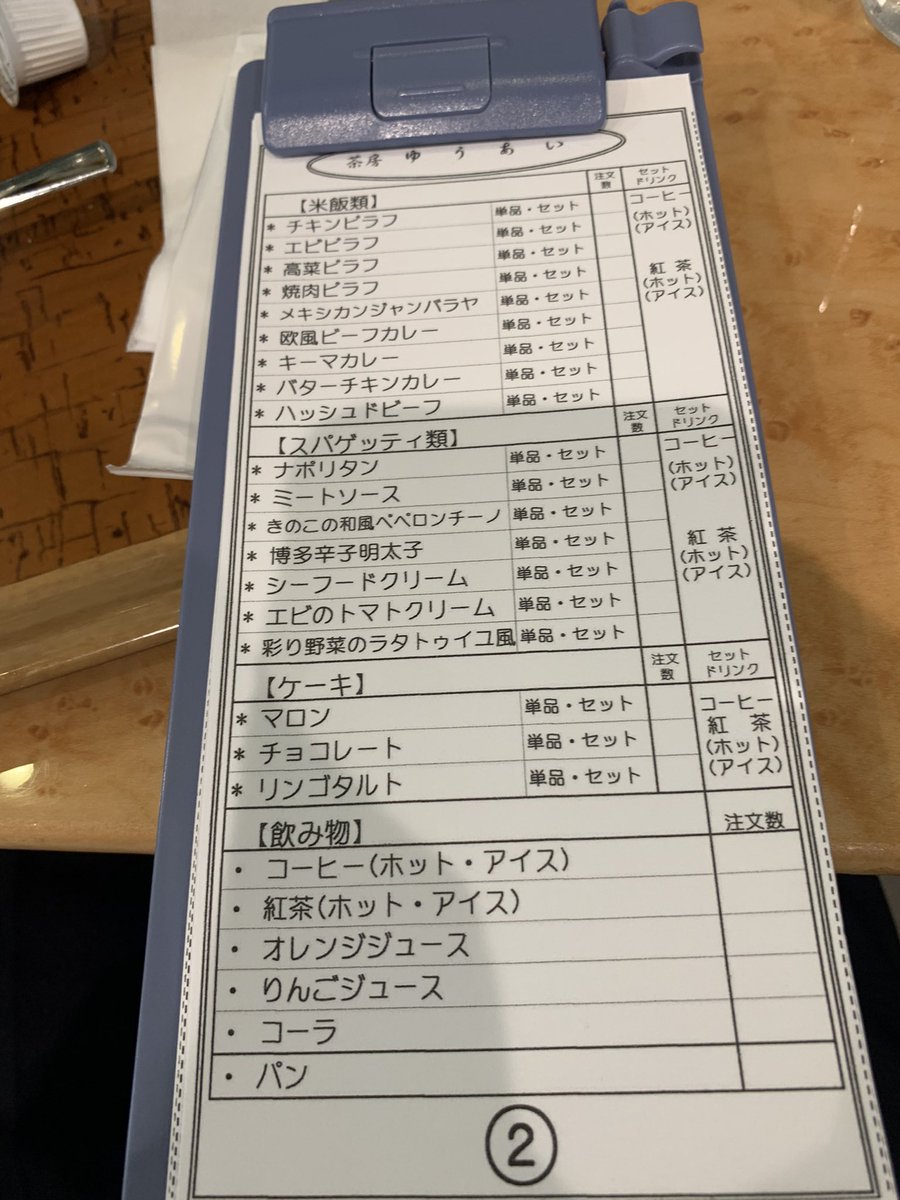 茶房 ゆうあい
【米飯類】 注文数 セットドリンク
* チキンピラフ 単品・セット コーヒー
* エビピラフ 単品・セット (ホット)
* 高菜ピラフ 単品・セット (アイス)
* 焼肉ピラフ 単品・セット 紅茶
* メキシカンジャンバラヤ 単品・セット (ホット)
* 欧風ビーフカレー 単品・セット (アイス)
* キーマカレー 単品・セット
* バターチキンカレー 単品・セット
* ハッシュドビーフ 単品・セット
【スパゲッティ類】 注文数 セットドリンク
* ナポリタン 単品・セット コーヒー
* ミートソース 単品・セット (ホット)
* きのこの和風ペペロンチーノ 単品・セット (アイス)
* 博多辛子明太子 単品・セット 紅茶
* シーフードクリーム 単品・セット (ホット)
* エビのトマトクリーム 単品・セット (アイス)
* 彩り野菜のラタトゥイユ風 単品・セット
【ケーキ】 注文数 セットドリンク
* マロン 単品・セット コーヒー
* チョコレート 単品・セット 紅茶
(ホット)
* リンゴタルト 単品・セット (アイス)
【飲み物】 注文数
・ コーヒー(ホット・アイス)
・ 紅茶(ホット・アイス)
・ オレンジジュース
・ りんごジュース
・ コーラ
・ パン
②